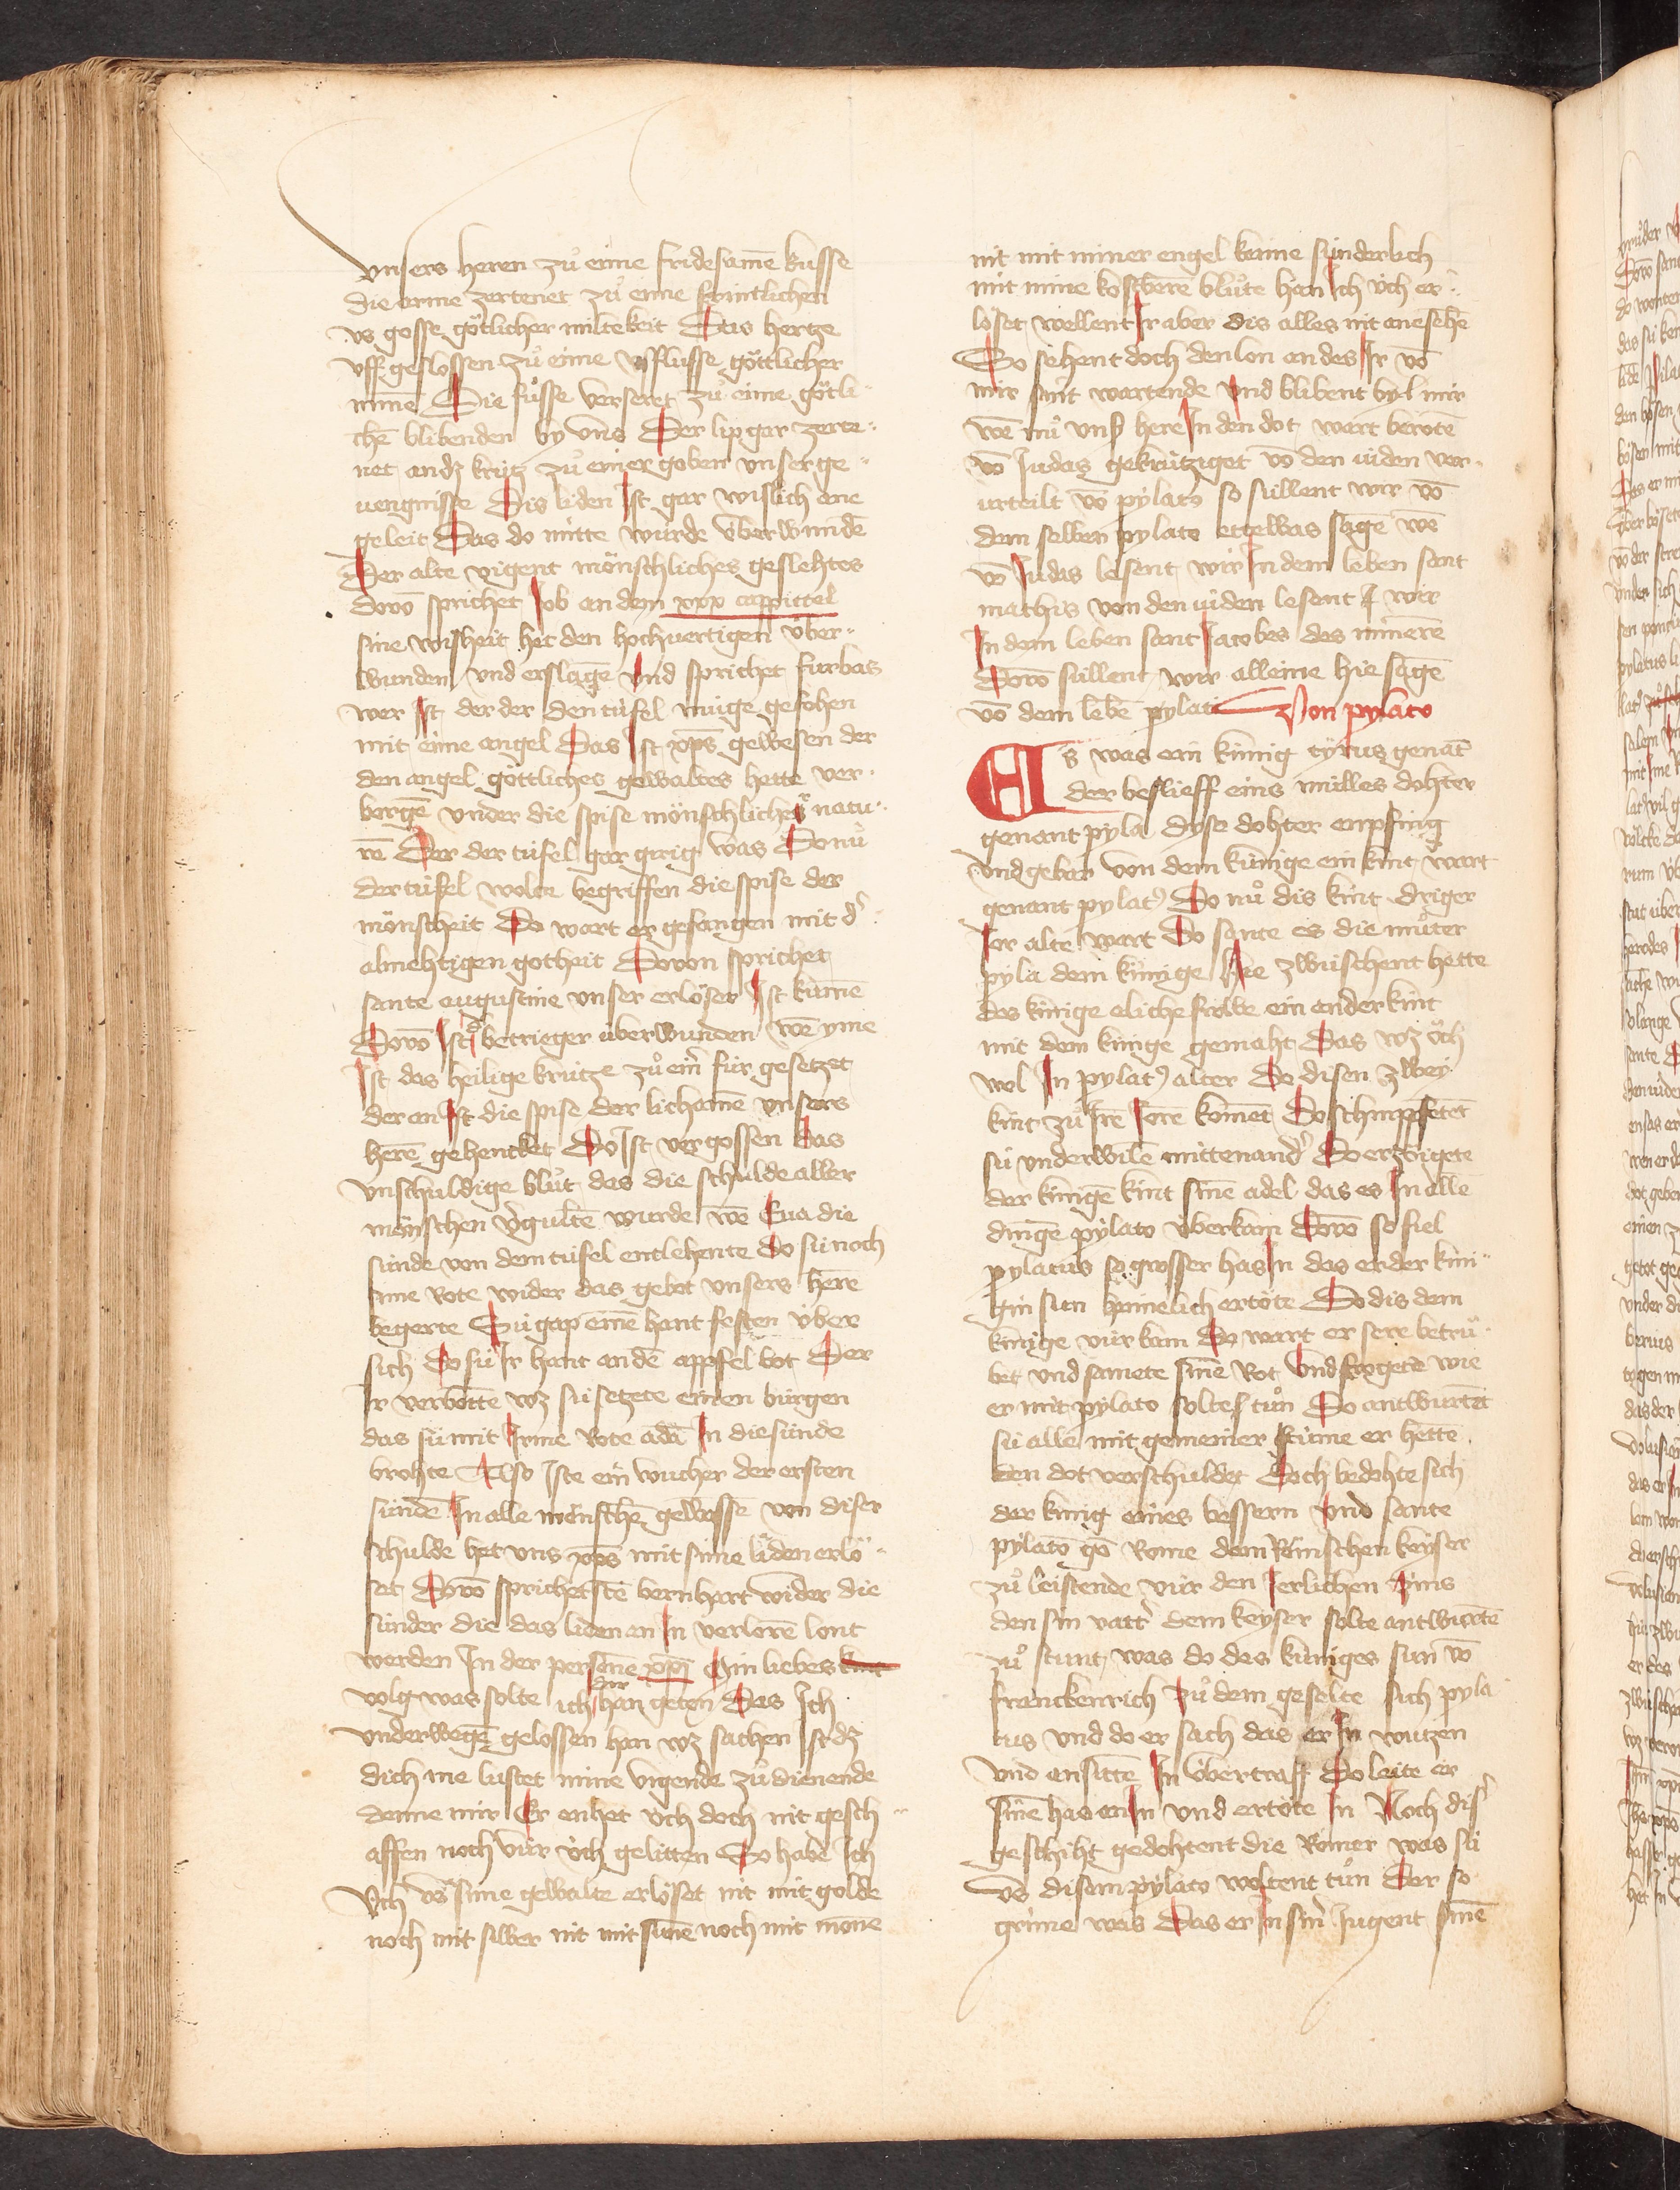 vnsers heren zů eime fridesamē kusse
die arme zertenet zů eime frintlichen
vs gosse götlicher miltekeit Das hertze
vff geslossen zů eime vsflusse göttlicher
minne Die füsse verseret zů eime götli-
chē blibenden by vns Der lip gar zerte-
net an dz krütz zů einer goben vnser ge-
uengnisse Dis liden Ist gar wislich ane
geleit Das do mitte wurde überwunde
Der alte vigent mönschliches geslehtes
dovō sprichet Job an dem xxx cappittel
sine wisheit het den hochvertigen über-
wunden vnd erslagē vnd sprichet fürbas
wer Ist der der den tüfel müge gefohen
mit eime angel Das Ist xp̄s gewesen der
den angel göttliches gewaltes hette ver-
borgē vnder die spise mönschlicher natu-
rē Der der tüfel gar girig was Do nů
der tüfel wolte begriffen die spise der
mönscheit Do wart er gefangen mit dˀ
almehtigen gotheit Dovon sprichet
sante augustine vnser erlöser Ist kumē
Dovō Ist dˀ betrieger überwunden wē yme
Ist das heilige krütze zů eim̄ für gesetzet
der an Ist die spise der lichamē vnsers
herē gehencket Do Ist vergossen das
vnschuldige blůt das die schulde aller
mönschen v̓gultē wurde wē Eua die
sünde von dem tüfel entlehente do sü noch
sime Rote wider das gebot vnsers herē
begerte Sü gap eine hantfesten über
sich do sü Ir hant an dē appfel bot Der
Ir verbottē wz sü setzete einen bürgen
das sü mit Irme Rote adā In die sünde
brohte Also Iste ein wucher der ersten
sündē In alle mönschē gewassē von diser
schulde het vns xp̄s mit sime liden erlö-
set Dovō sprichet stē bernhart wider die
sünder die das liden an In verlorē lont
werden In der persone xp̄i Min liebes kint
volg was solte ich dir han geton Das Ich
vnderwegē gelossen han wz sachen Ist dz
dich me lustet mine vigende zů dienende
denne mir Er enhet üch doch nit gesch-
affen noch vür üch gelitten So habe Ich
üch vs sime gewalte erlöset nit mit golde
noch mit silber nit mit sunē noch mit mone
nit mit miner engel keime sünderlich
mit mime kostberē blůte han Ich üch er-
löset wellent Ir aber dis alles nit ane sehē
So sehent doch den lon an des Ir vō
mir sint wartende vnd blibent by mir
wē nů vns̓ here In den dot wart verotē
vō Judas gekrütziget vō den iüden ver-
urteilt vō pylato so süllent wir vō
dem selben pylato ettewas sage wē
vō Judas lesent wir In dem leben sant
mathis von den iüden lesent wir
In dem leben sant Jacobes des mīnerē
Dovō süllent wir alleine hie sagē
vō dem lebē pylati Von pylato
Es was ein künig tyrus genāt
der beslieff eins mülles dohter
genant pyla dyse dohter enpfing
vnd gebar von dem künige ein kint wart
genant pylatꝰ Do nů dis kint driger
Jor alte wart Do sante es die můter
pyla dem künige Hie zwüschent hette
des künige eliche frowe ein ander kint
mit dem künge gemaht Das wz öch
wol In pylatꝰ alter Do disen zwey
kint zů Irē Jorē komēt Do schimpfetēt
sü vnderwilē mittenandˀ Do erzöigete
der künigē kint sinē adel das es In allē
dingē pylato überkam Dovō so fiel
pylatus so grosser has In das er der küni-
gin sun heimelich ertöte Do dis dem
künige vür kam Do wart er sere betrů-
bet vnd samete sinē Rot Vnd frogete wie
er mit pylato solte tůn Do antwurtēt
sü alle mit gemeiner stime er hette
den dot verschuldet Doch bedohte sich
der künig eines bessern vnd sante
pylatō gō Rome dem Römschen keyser
zů leistende vür den Jerlichen zins
den sin vattˀ dem keyser solte antwurtē
zů stunt was do des küniges sun vō
franckenrich zů dem geselte sich pyla-
tus vnd do er sach das er In wutzen
vnd an sittē In übertraff Do leite er
sinē has an In vnd ertöte In Noch disˀ
geschiht gedohtent die Römer was sü
vs disem pylato woltent tůn Der so
grime was Das er In sinˀ Jugent sinē